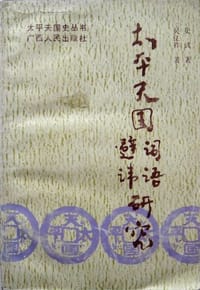 太平天国史丛书
广西人民出版社
史式 著
吴良祚 著
太平天国
词语
避讳
研究